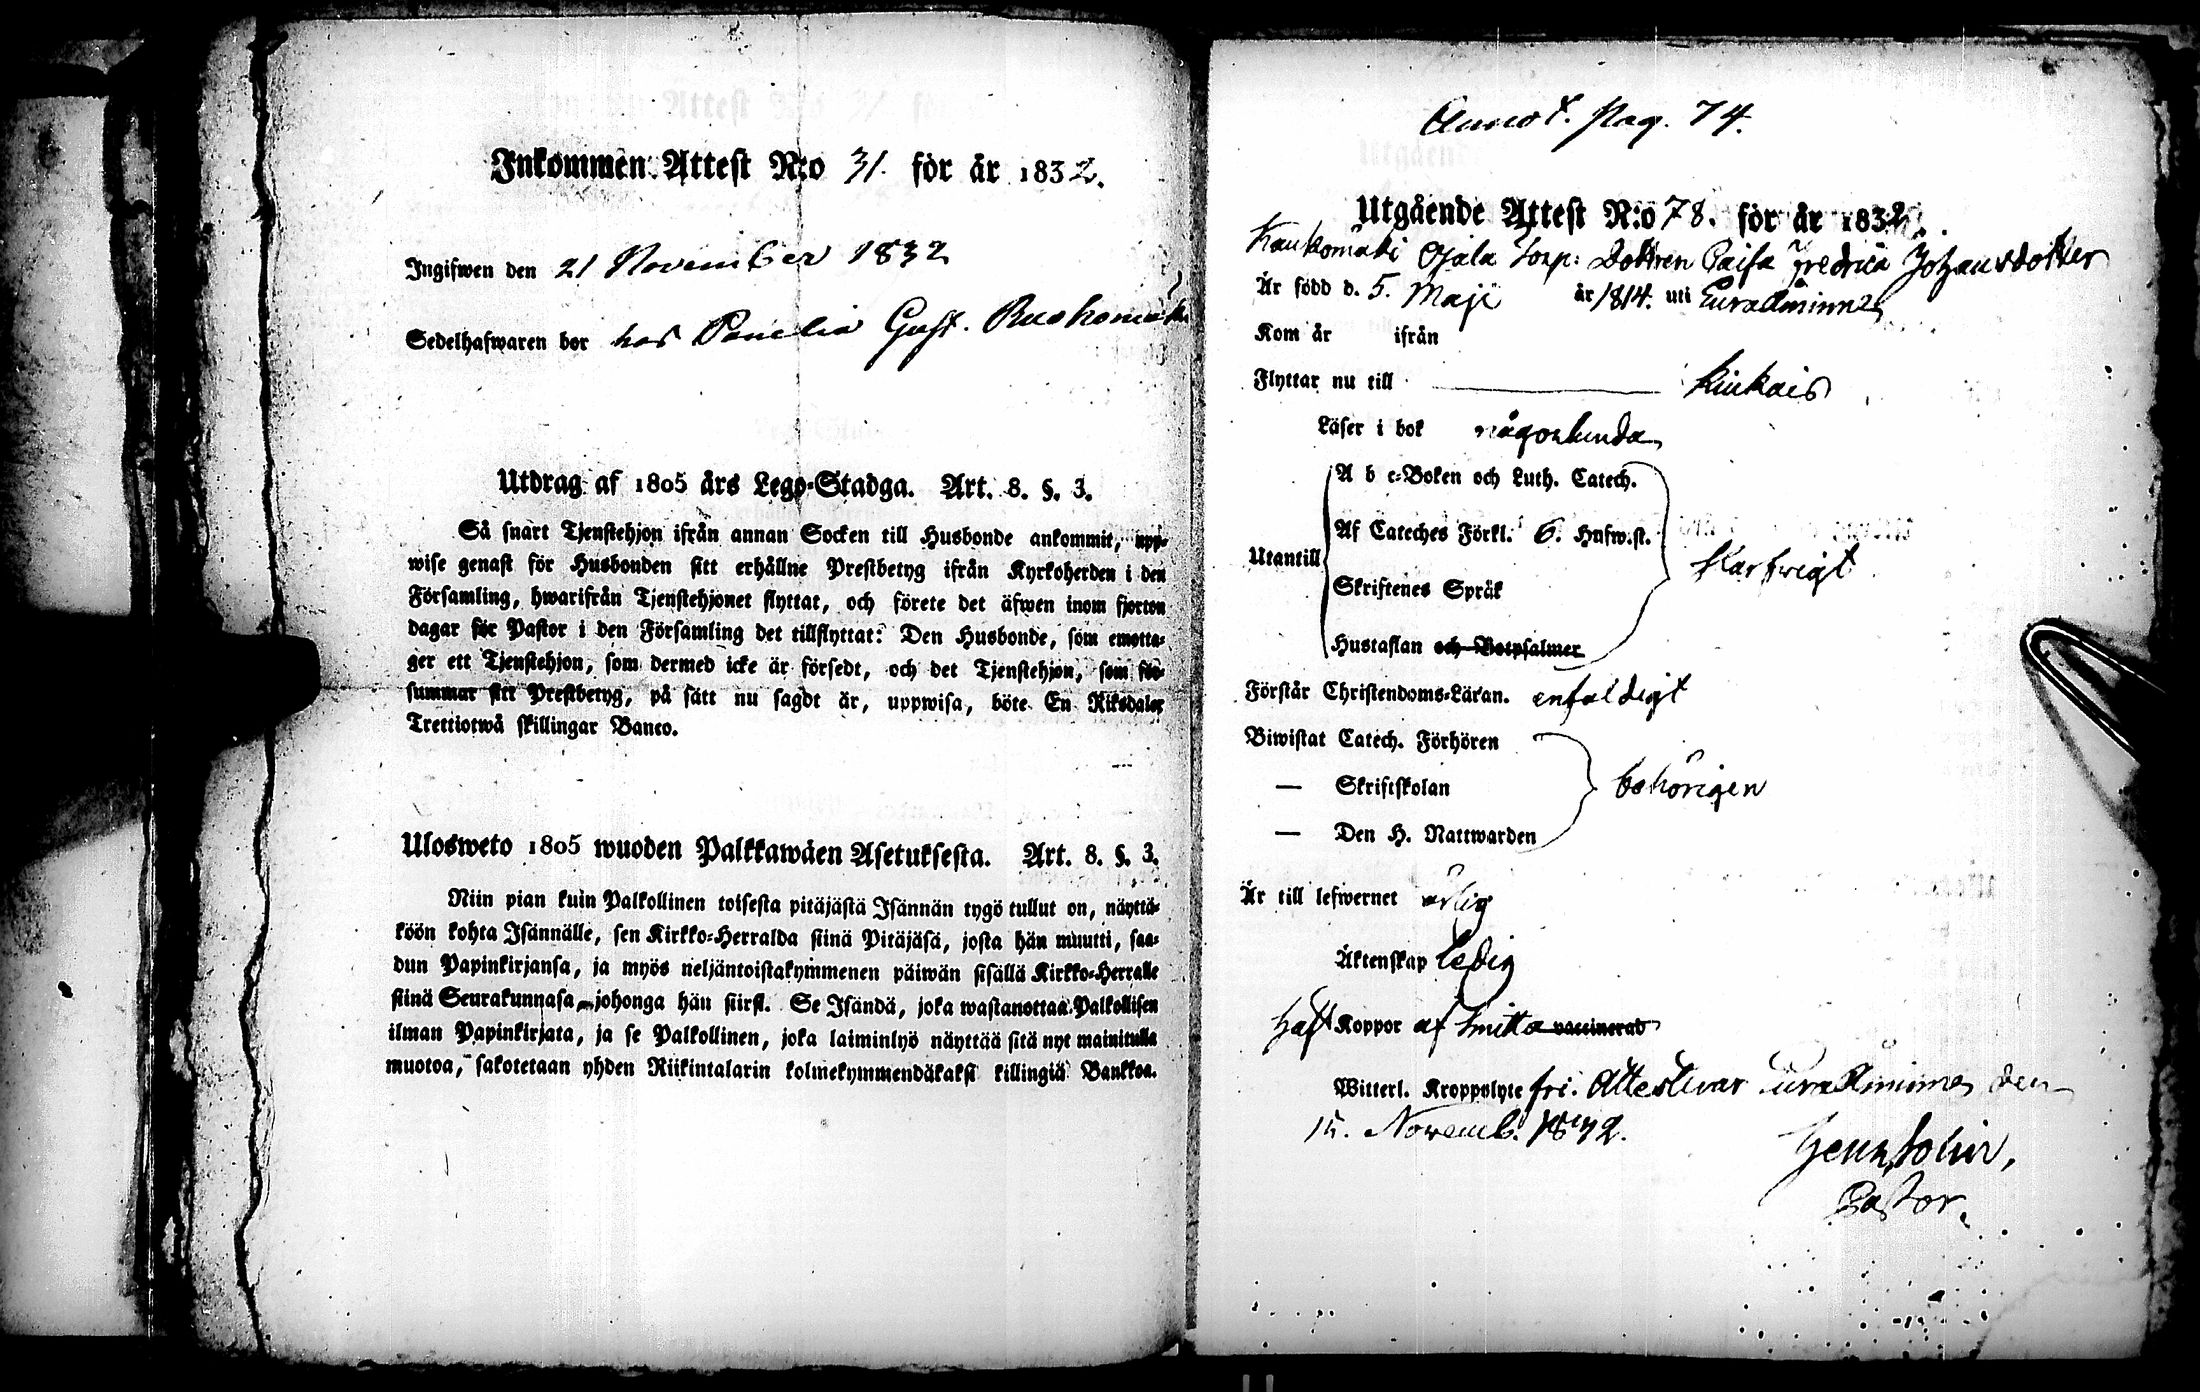 Inkommen Attest N:o 31. för år 1832.
Ingifwen den 21 November 1832
Sedelhafwaren bor hos Panelia Gust.
Utdrag af 1805 års Lego-Stadga. Art. 8. §. 3.
Så snart Tjenstehjon ifrån annan Socken till Husbonde ankommit, upp-
wise genast för Husbonden sitt erhållne Prestbetyg ifrån Kyrkoherden i den
Församling, hwarifrån Tjenstehjonet flyttat, och förete det äfwen inom fjorton
dagar för Pastor i den Församling det tillflyttat: Den Husbonde, som emotta-
ger ett Tjenstehjon, som dermed icke är försedt, och det Tjenstehjon, som för-
summar sitt Prestbetyg, på sätt nu sagdt är, uppwisa, böte En Riksdaler
Trettiotwå skillingar Banco.
Ulosweto 1805 wuoden Palkkawäen Asetuksesta. Art. 8. §. 3.
Niin pian kuin Palkollinen toisesta pitäjästä Isännän tygö tullut on, näyttä-
köön kohta Isännälle, sen Kirkko-Herralda siinä Pitäjäsä, josta hän muutti, saa-
dun Papinkirjansa, ja myös neljäntoistakymmenen päiwän sisällä Kirkko-Herralle
siinä Seurakunnasa johonga hän siirsi. Se Isändä, joka wastanottaa Palkollisen
ilman Papinkirjata, ja se Palkollinen, joka laiminlyö näyttää sitä nyt mainitulla
muotoa, sakotetaan yhden Riikintalarin kolmekymmendäkaksi killingiä Bankkoa.
Annot. Pag. 74.
Utgående Attest N:o 78. för år 1832.
Kaukomäki Ojala Torp: Dottren Caisa Fredrica Johansdotter
Är född d. 5. Maji år 1814. uti Euraåminne
Kom år ifrån
Flyttar nu till Kiukais
Läser i bok någorlunda
Utantill
A b c-Boken och Luth. Catech.
Af Cateches Förkl. 6. Hufw.st.
Skriftenes Språk
Hustaflan och Botpsalmer
Försvarligt
Förstår Christendoms-Läran. enfaldigt
Biwistat Catech. Förhören
— Skriftskolan
— Den H. Nattwarden
behörigen
Är till lefwernet ärlig
Äktenskap ledig
Haft Koppor af smitta vaccinerad
Witterl. Kroppslyte fri. Attesterar Euraåminne den
15. Novemb. 1832.
Pastor.